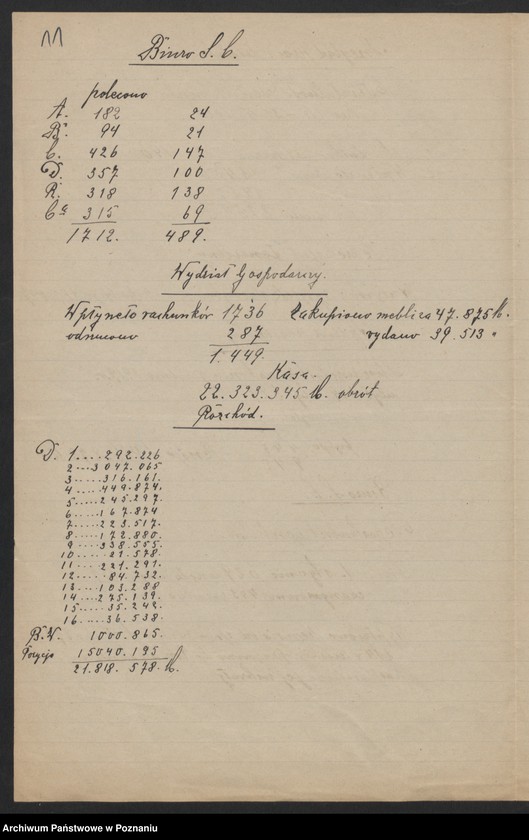 11
Biuro S. C.
polecono
A. 182 24
B. 94 21
C. 426 147
D. 357 100
R. 318 138
Ca 315 69
1712. 489.
Wydział Gospodarczy.
Wpłynęło rachunków 1736 Zakupiono mebli za 47.875 M.
odmówiono 287 wydano 39.513 "
1.449.
Kasa.
22.323.345 M. obrót
Rozchód.
D. 1....292.226
2...3047.065
3....316.161.
4....449.874.
5....245.297.
6....167.874
7....223.517.
8....172.880.
9....338.555.
10.....21.578.
11....221.291.
12.....84.732.
13....103.288
14....275.139.
15.....35.242.
16.....36.538.
B.W. 1000.865.
15040.195
21.818.578 M.
Archiwum Państwowe w Poznaniu